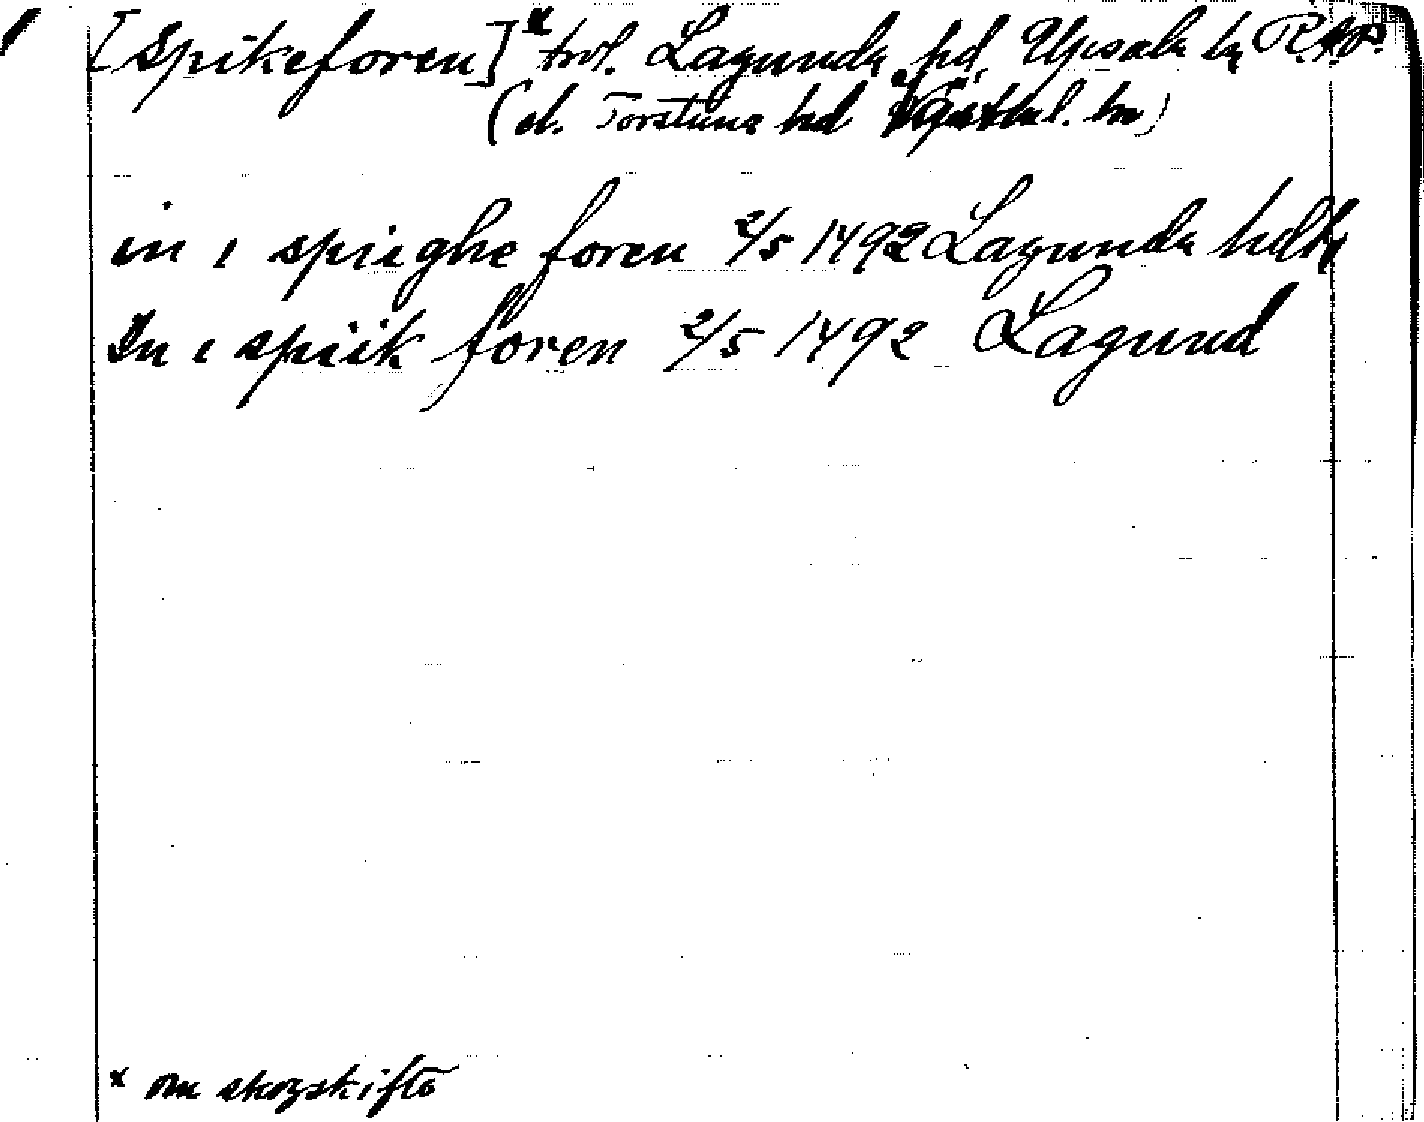 [Spikeforen]x trol. Lagunda hd, Upsala ln
(el. Torstuna hd Västml. ln)
in i spieghe foren 2/5 1492 Lagunda hdtg
In i spiik foren 2/5 1492 Lagund
x om skogskifte